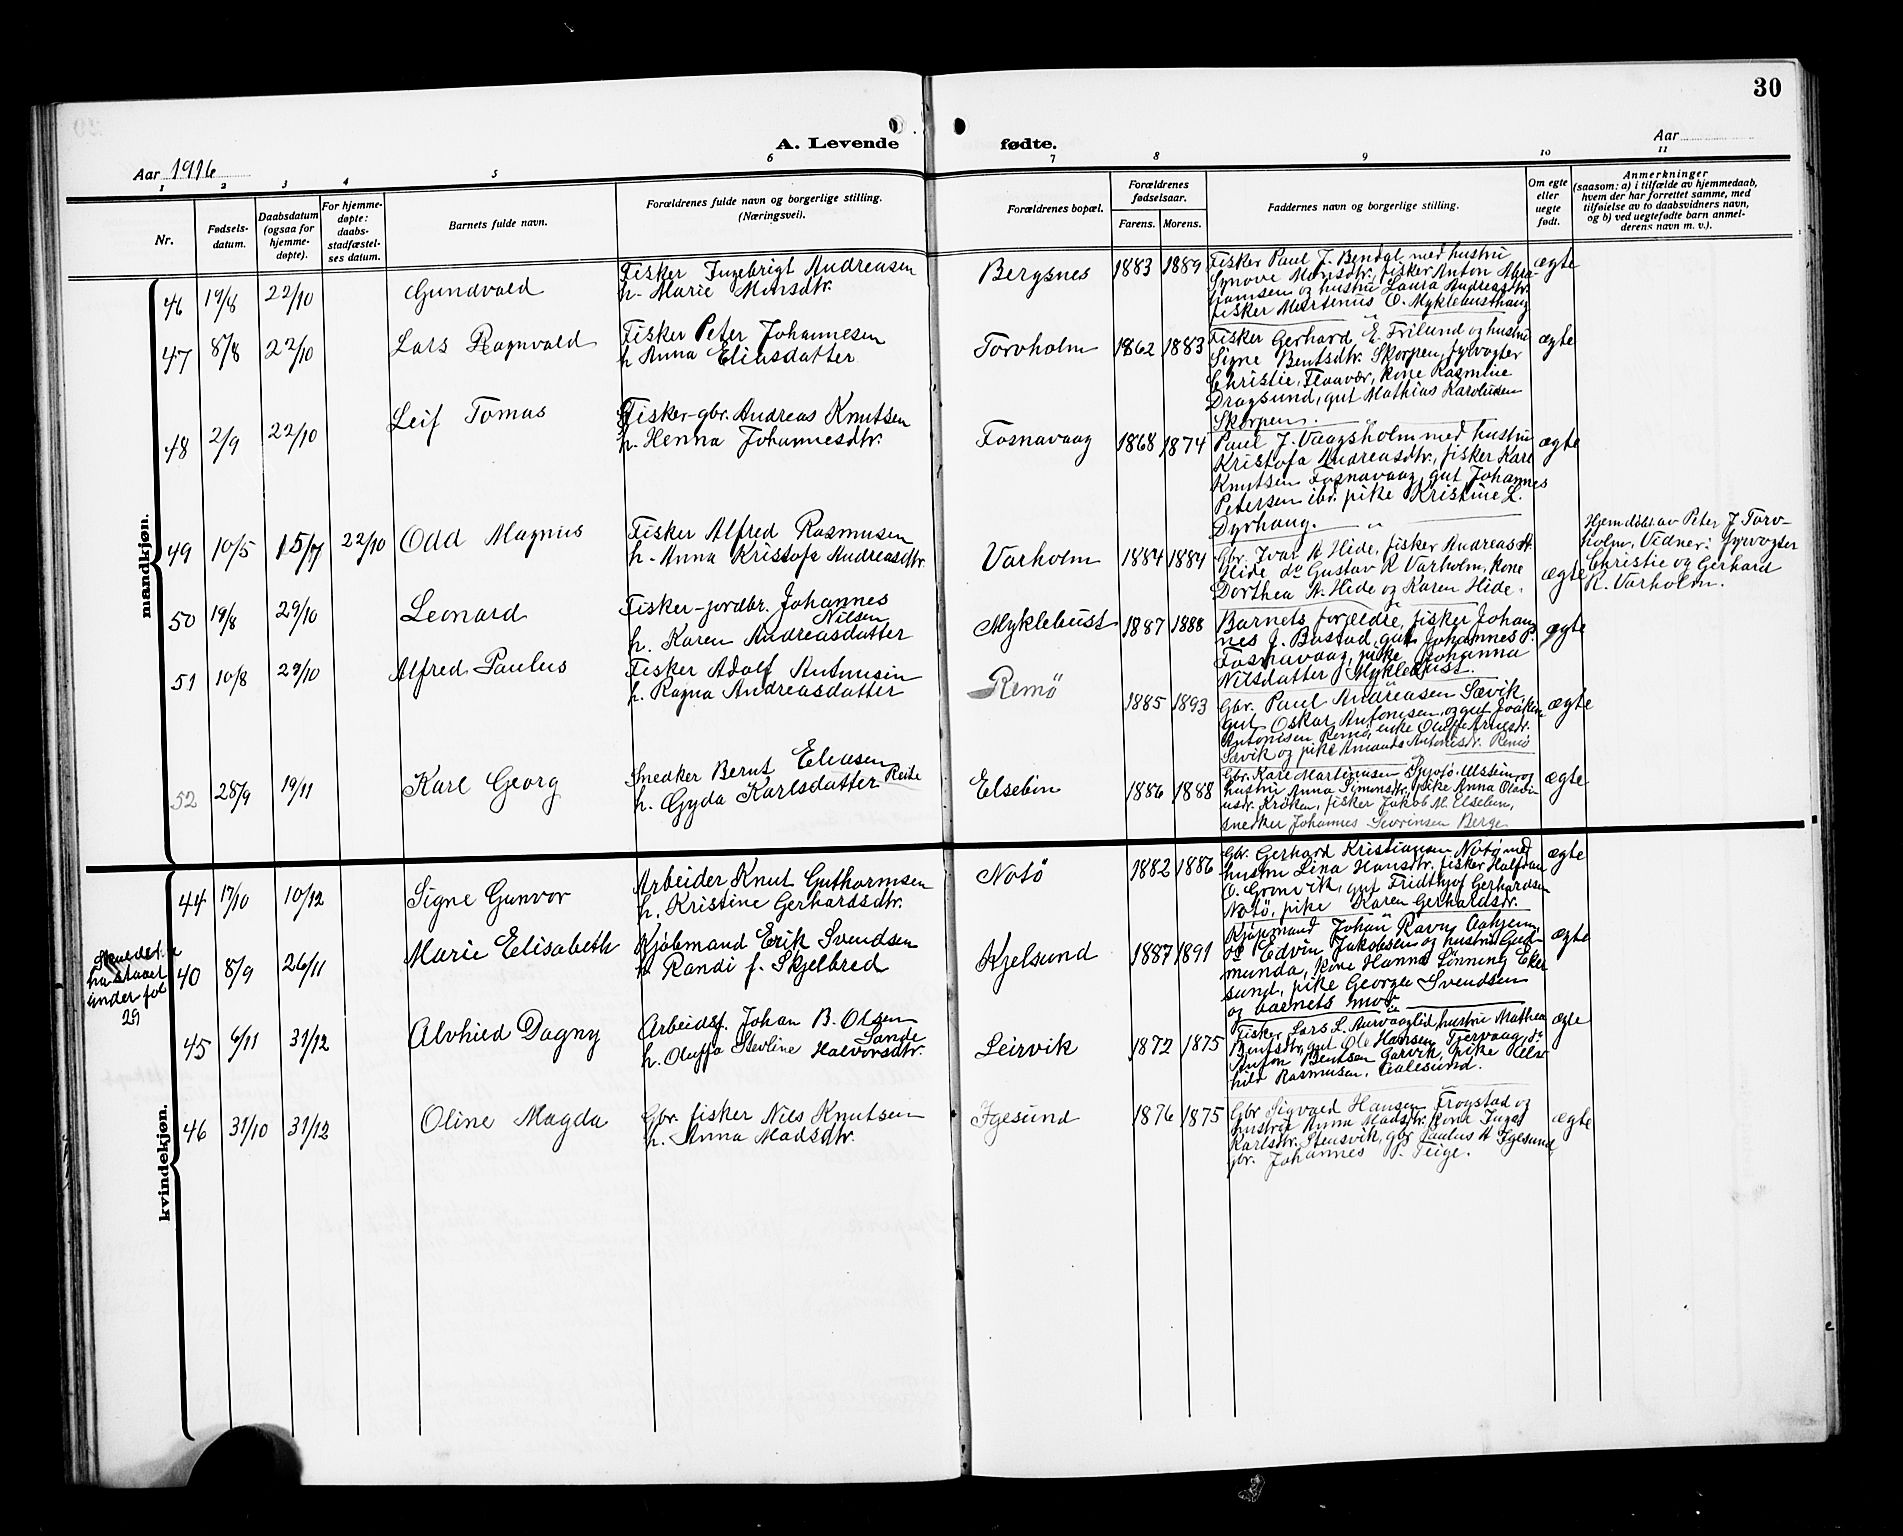 30
A. Levende fødte.
Aar 1916
Aar
1 2 3 4 5 6 7 8 9 10 11
Nr.
Fødsels-
datum.
Daabsdatum
(ogsaa for
hjemme-
døpte).
For hjemme-
døpte:
daabs-
stadfæstel-
ses datum.
Barnets fulde navn.
Forældrenes fulde navn og borgerlige stilling.
(Næringsvei).
Forældrenes bopæl.
Forældrenes
fødselsaar.
Farens. Morens.
Faddernes navn og borgerlige stilling.
Om egte
eller
uegte
født.
Anmerkninger
(saasom: a) i tilfælde av hjemmedaab,
hvem der har forrettet samme, med
tilføielse av to daabsvidners navn,
og b) ved uegtefødte barn anmel-
derens navn m. v.).
mandkjøn.
46 19/8 22/10 Gundvald
Fisker Ingebrigt Andreasen
h. Marie Monsdtr.
Bergsnes 1883 1889
Fisker Paul J. Bendal med hustru
Synøve Monsdtr., fisker Anton Abra-
hamsen og hustru Laura Andreasdtr.
fisker Martinus O. Myklebusthaug
ægte
47 8/8 22/10 Lars Ragnvald
Fisker Peter Johannesen
h. Anna Eliasdatter
Torvholm 1862 1883
Fisker Gerhard E. Frilund og hustru
Signe Bentsdtr. Skorpen, fyrvogter
Christie, Flaavær, kone Rasmine
Dragsund, gut Mathias Karolusen
Skorpen.
ægte
48 2/9 22/10 Leif Tomas
Fisker-gbr. Andreas Knutsen
h. Henna Johannesdtr.
Fosnavaag 1868 1874
Paul J. Vaagsholm med hustru
Kristofa Andreasdtr., fisker Kare
Knutsen Fosnavaag, gut Johannes
Petersen ibr. pike Kristine L.
Dyrhaug.
ægte
49 10/5 15/7 22/10 Odd Magnus
Fisker Alfred Rasmusen
h. Anna Kristofa Andreasdtr.
Varholm 1884 1884
Gbr. Ivar A Hide, fisker Andreas A.
Hide do Gustav R Varholm, kone
Dorthea A. Hide og Karen Hide.
ægte
Hjemdøbt av Peter J Torv-
holm. Vidner: fyrvogter
Christie og Gerhard
R. Varholm.
50 19/8 29/10 Leonard
Fisker-jordbr. Johannes
Nilsen
h. Karen Andreasdatter
Myklebust 1887 1888
Barnets forældre, fisker Johan
nes J. Bostad, gut Johannes P.
Fosnavaag, pike Johanna
Nilsdatter Myklebust.
ægte
51 10/8 29/10 Alfred Paulus
Fisker Adolf Antonisen
h. Ragna Andreasdatter
Remø 1885 1893
Gbr. Paul Andreasen Sævik,
gut Oskar Antonisen, og gut Joakim
Antonisen Remø, enke Oluffa Arnesdr.
Sævik og pike Amanda Antonisdr. Remø
ægte
52 28/9 19/11 Karl Georg
Snedker Bernt Eliasen
Reite
h. Gyda Karlsdatter
Elsebøn 1886 1888
Gbr. Kare Martinusen Ulstein, og
hustru Anna Simonsdtr., pike Anna Olavin
usdr. Krøken, fisker Jakob M. Elsebøn,
snedker Johannes Sevrinsen Berge
ægte
kvindekjøn.
44 17/10 10/12 Signe Gunvor
Arbeider Knut Guthormsen
h. Kristine Gerhardsdtr.
Notø 1882 1886
Gbr. Gerhard Kristiansen Notø med
hustru Lina Hansdtr. fisker Halfdan
O. Grønvik, gut Fridthjof Gerhardsen
Notø, pike Karen Gerhardsdtr.
ægte
Skulde
ha staaet
under fol
29
40 8/9 26/11 Marie Elisabeth
Kjøbmand Erik Svendsen
h. Randi f. Skjelbred
Kjelsund 1887 1891
Kjøpmand Johan Ravn Aahjem
do Edvin Jakobsen og hustru Gud-
munda, kone Hanna Lønning Eker
sund, pike Georgea Svendsen
og barnets mor
ægte
45 6/11 31/12 Alvhild Dagny
Arbeidsf. Johan B. Olsen
Sande
h. Oluffa Stevline Halvorsdtr.
Leirvik 1872 1875
Fisker Lars L. Aurvaaglid, hustru Mathea
Bentsdtr, gut Ole Hansen Tjervaag, do
Anton Bentsen Garvik, pike Als
hild Rasmusen, Aalesund.
ægte
46 31/10 31/12 Oline Magda
Gbr. fisker Nils Knutsen
h. Anna Madsdtr.
Igesund 1876 1875
Gbr Sigvald Hansen Frogstad og
hustru Anna Madsdtr, kona Inga
Karlsdtr. Stensvik, gbr Paulus A Igesund,
gbr. Johannes - Teige.
ægte